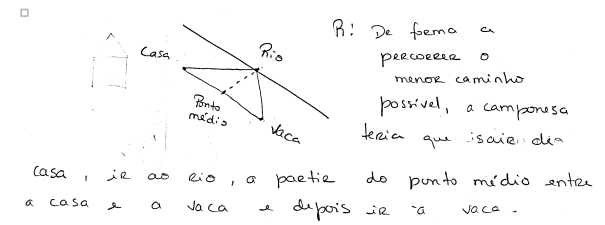 Casa
Rio
Ponto
médio
Vaca
R: De forma a
percorrer o
menor caminho
possível, a camponesa
teria que sair da
casa, ir ao rio, a partir do ponto médio entre
a casa e a vaca e depois ir à vaca.